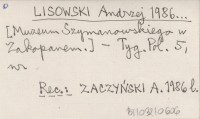 LISOWSKI Andrzej 1986...
[Museum Szymanowskiego w
Zakopanem.] - Tyg. Pol. 5,
nr
Rec.: ZACZYŃSKI A. 1986 l.